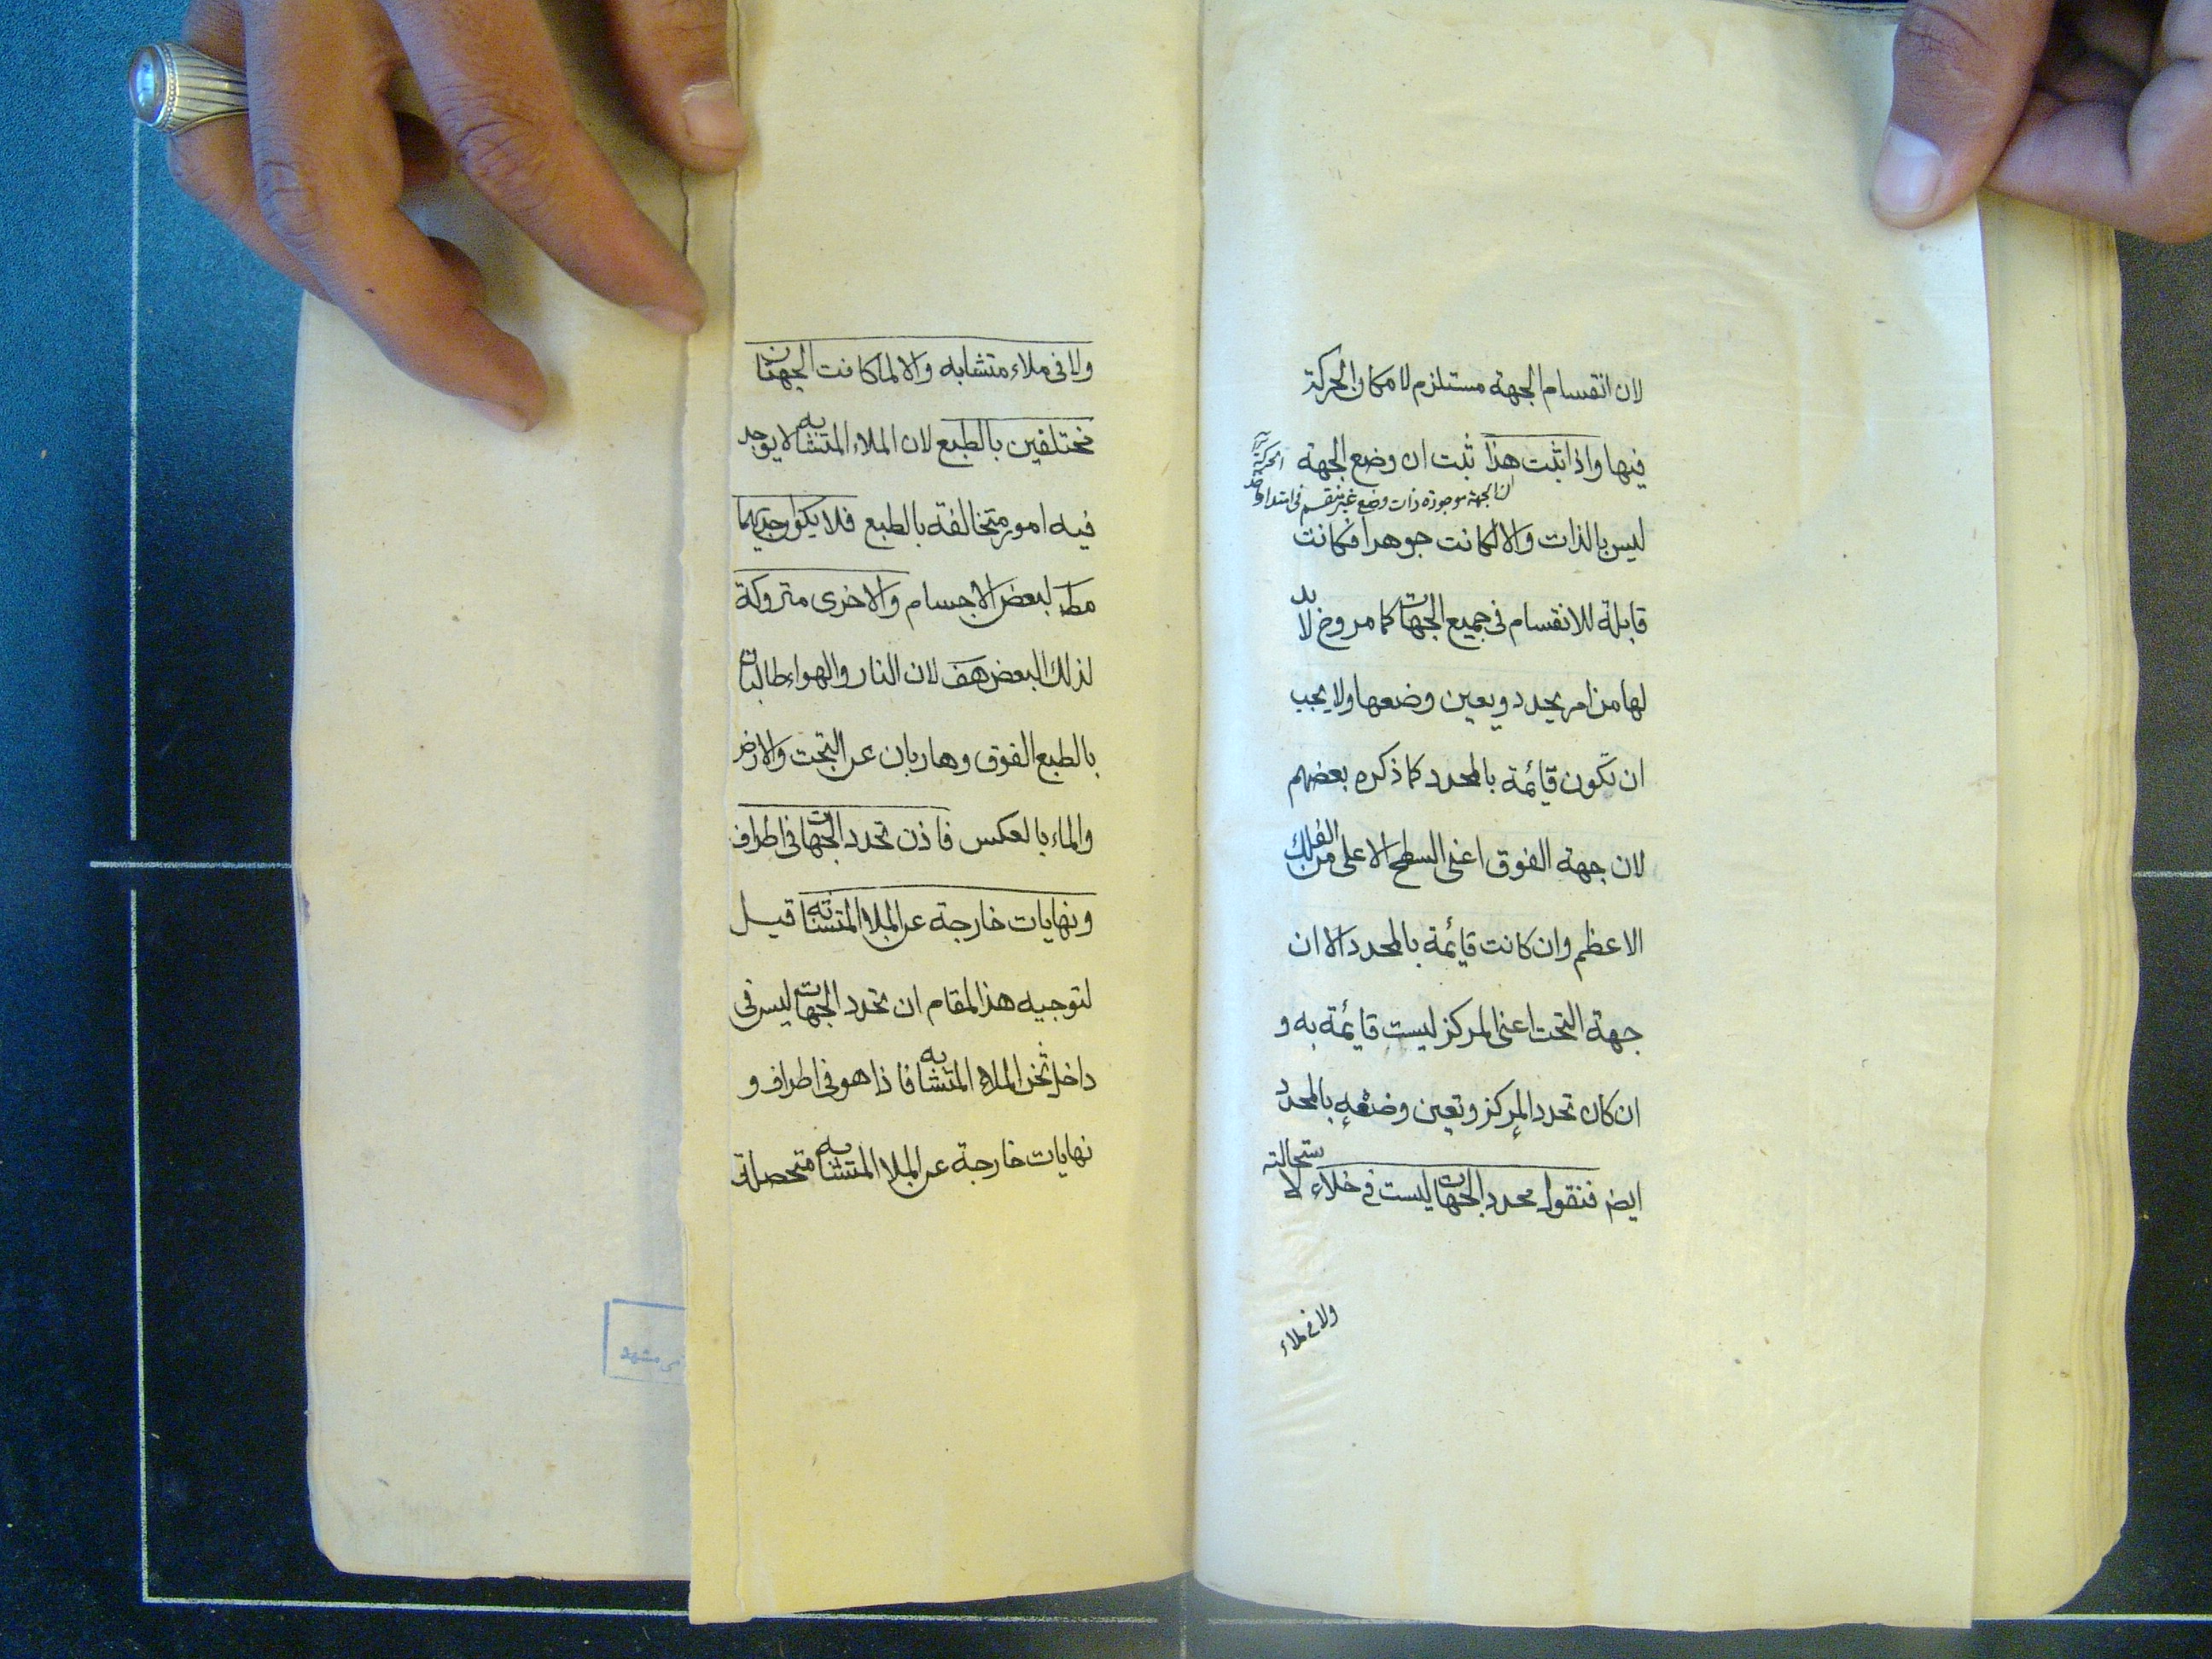 لان انقسام الجهة مستلزم لامكان الحركة
فيها واذا ثبت هذا ثبت ان وضع الجهة
ان الجهة موجودة ذات وضع غير منقسم فى امتداد
ليس بالذات والا لكانت جوهرا فكانت
قابلة للانقسام فى جميع الجهات كما مر وح لا بد
لها من امر يحدد ويعين وضعها ولا يجب
ان تكون قائمة بالمحدد كما ذكره بعضهم
لان جهة الفوق اعنى السطح الاعلى من الفلك
الاعظم وان كانت قائمة بالمحدد الا ان
جهة التحت اعنى المركز ليست قائمة به و
ان كان تحدد المركز وتعين وضعه بالمحدد
ايض فنقول محدد الجهات ليست فى خلاء لاستحالته
ولا فى ملاء
ولا فى ملاء متشابه والا لما كانت الجهتان
مختلفين بالطبع لان الملاء المتشابه لا يوجد
فيه امور متخالفة بالطبع فلا يكون احديهما
مط لبعض الاجسام والاخرى متروكة
لذلك البعض هف لان النار والهواء طالبان
بالطبع الفوق وهاربان عن التحت والارض
والماء بالعكس فاذن تحدد الجهات فى اطراف
ونهايات خارجة عن الملا المتشابه قيل
لتوجيه هذا المقام ان تحدد الجهات ليس فى
داخل ثخن الملاء المتشابه فاذا هو فى اطراف و
نهايات خارجة عن الملا المتشابه متحصلة